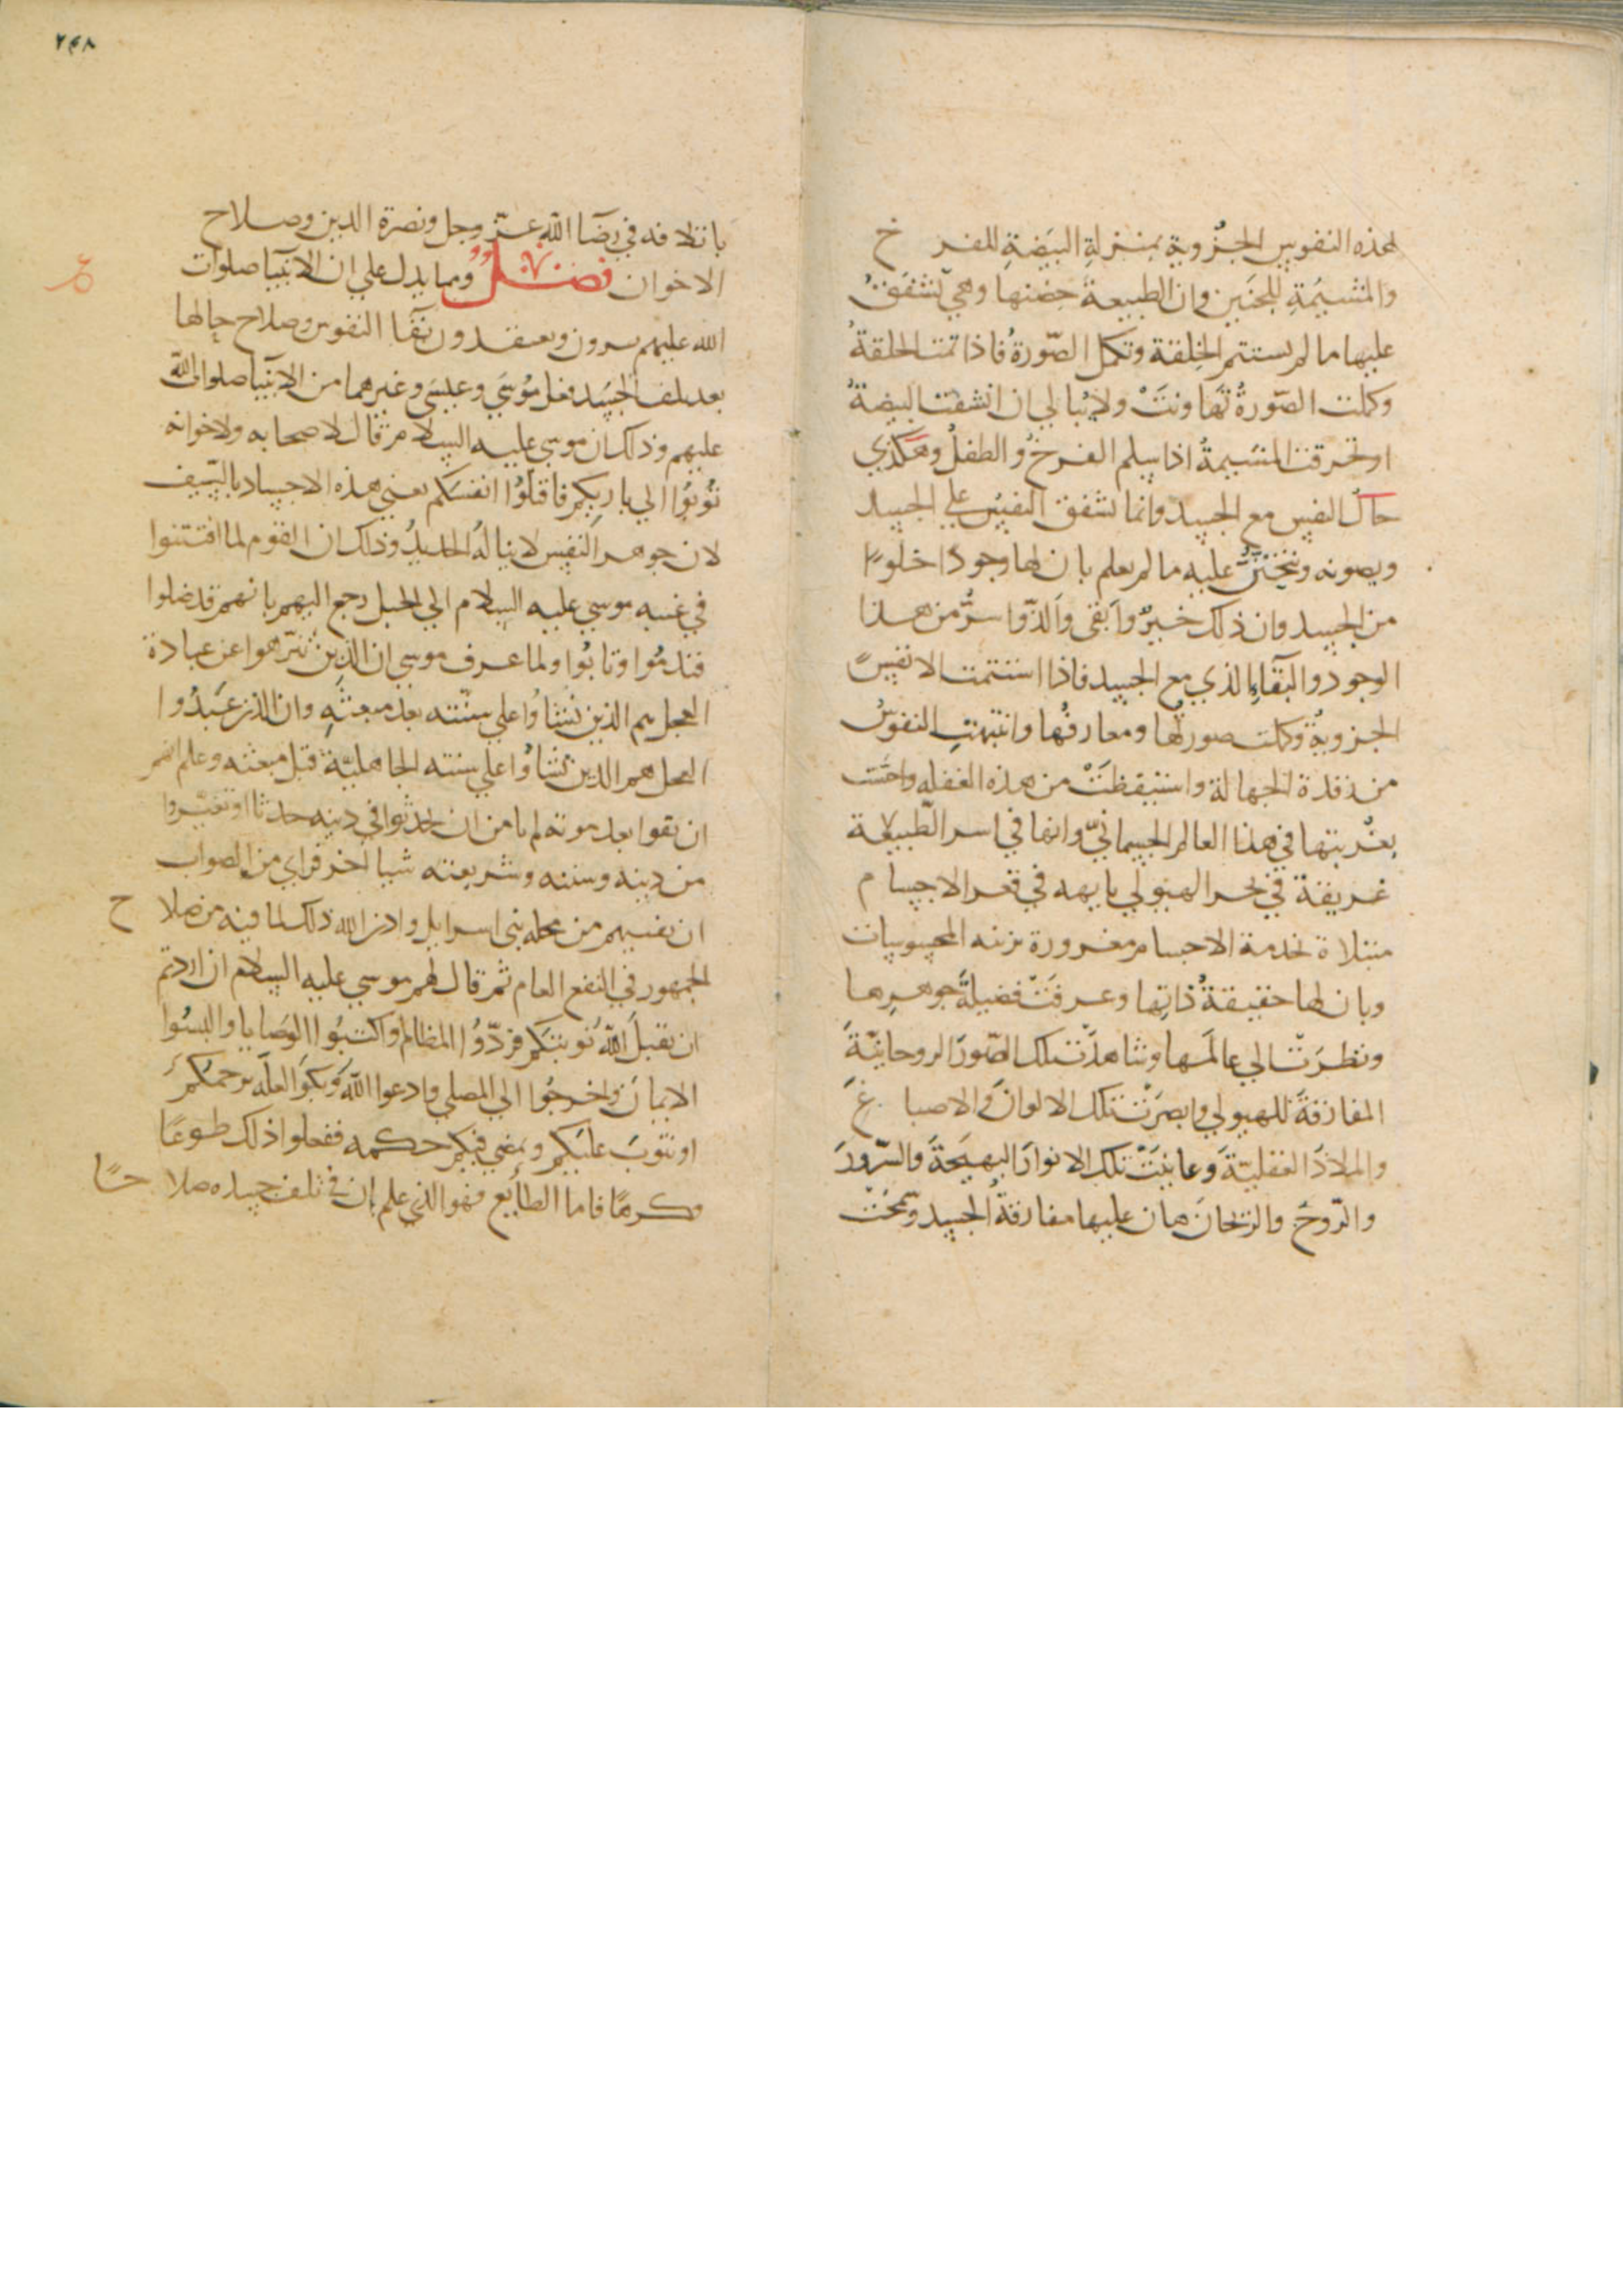 لهذه النفوس الجزوية بمنزلة البيضة للفرخ
والمشيمة للجنين وان الطبيعة حضنها وهي تشفق
عليها ما لم يستتم الخلقة وتكمل الصورة فاذا تمت الخلقة
وكملت الصورة تهاونت ولا يبالي ان انشقت البيضة
او تخرقت المشيمة اذا سلم الفرخ والطفل وهكذي
حال النفس مع الجسد وانما تشفق النفس علي الجسد
ويصونه وتتحنن عليه ما لم يعلم بان لها وجودا خلوا
من الجسد وان ذلك خير وابقى والذ واسر من هذا
الوجود والبقاء الذي مع الجسد فاذا استتمت الانفس
الجزوية وكملت صورتها ومعارفها وانتبهت النفوس
من رقدة الجهالة واستيقظت من هذه الغفله واحست
بغربتها في هذا العالم الجسماني وانها في اسر الطبيعة
غريقة في بحر الهيولي تايهه في قعر الاجسام
مبتلاة بخدمة الاجسام مغرورة بزينه المحسوسات
وبان لها حقيقة ذاتها وعرفت فضيلة جوهرها
ونظرت الي عالمها وشاهدت تلك الصور الروحانية
المفارقة للهيولي وابصرت تلك الالوان والاصباغ
والملاذ العقلية وعاينت تلك الانوار البهيجة والسرور
والروح والريحان هان عليها مفارقة الجسد وسمحت
٢٤٨
باتلافه في رضا الله عز وجل ونصرة الدين وصلاح
الاخوان فصل ومما يدل علي ان الانبيا صلوات
الله عليهم يرون ويعتقدون بقا النفوس وصلاح حالها
بعد تلف الجسد فعل موسي وعيسي وغيرهما من الانبيا صلوات الله
عليهم وذلك ان موسي عليه السلام قال لاصحابه ولاخوانه
توبوا الي باريكم فاقتلوا انفسكم يعني هذه الاجساد بالسيف
لان جوهر النفس لا يناله الحديد وذلك ان القوم لما افتتنوا
في غيبه موسي عليه السلام الي الجبل رجع اليهم بانهم قد ضلوا
فندموا وتابوا ولما عرف موسي ان الذين تنزهوا عن عبادة
العجل هم الذين نشاوا علي سنته بعد مبعثه وان الذين عبدوا
العجل هم الذين نشاوا علي سنته الجاهلية قبل مبعثه وعلم انهم
ان بقوا بعد موته لم يامن ان يحدثوا في دينه حدثا او تغيروا
من دينه وسننه وشريعته شيا اخر فراي من الصواب
ان نفيهم من محله بني اسرايل واذن الله ذلك لما فيه من صلاح
الجمهور في النفع العام ثم قال لهم موسي عليه السلام ان اردتم
ان تقبل الله توبتكم فردوا المظالم واكتبوا الوصايا والبسوا
واخرجوا الي المصلي وادعوا الله وبكوا لعله يرحمكم
او يتوب عليكم ويمضي فيكم حكمه ففعلوا ذلك طوعا
وكرها فاما الطايع فهو الذي علم ان في تلف جسده صلاحا